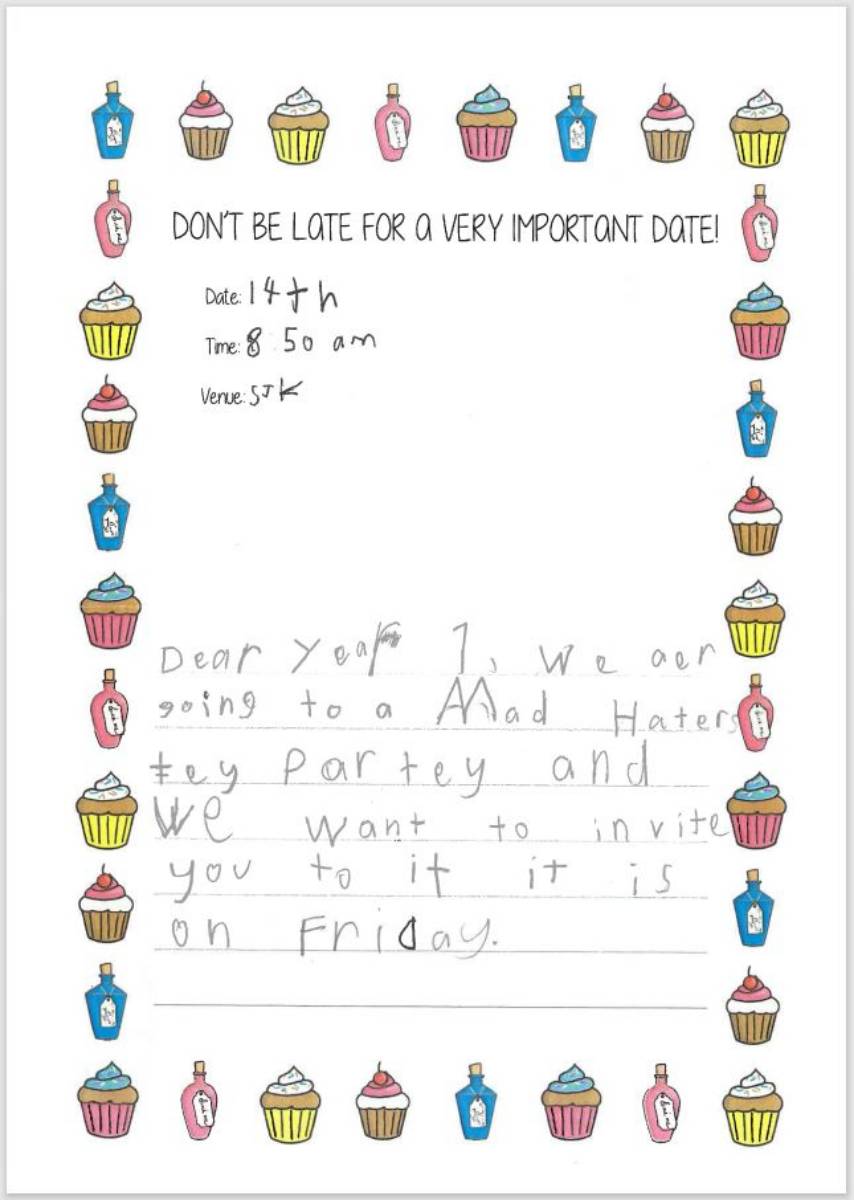 DON'T BE LATE FOR A VERY IMPORTANT DATE!
Date: 14th
Time: 8 50 am
Venue: SJK
Dear Year 1, We aer
going to a Mad Haters
tey Partey and
We want to invite
you to it it is
on Friday.